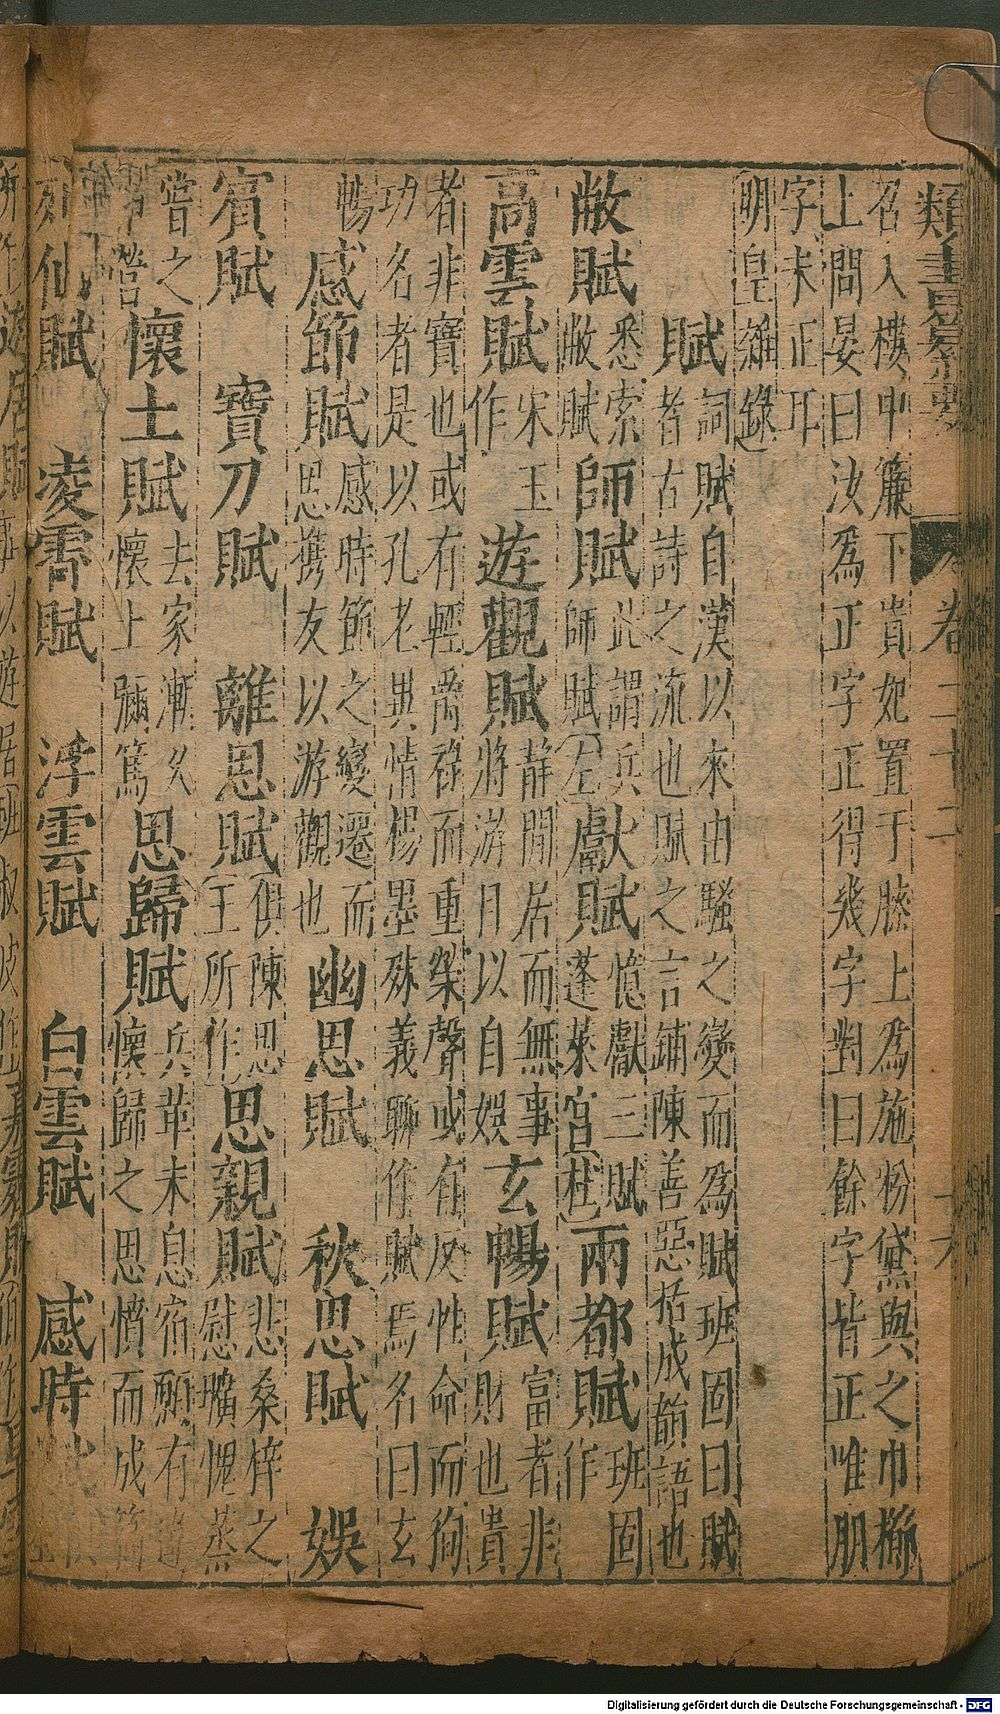 類書纂要 卷二十二 十六
召入樓中簾下貴妃置于膝上為施粉黛與之巾櫛
上問晏曰汝為正字正得幾字對曰餘字皆正唯朋
字未正耳
明皇雜錄
賦
詞賦自漢以來由騷之變而為賦班固曰賦
者古詩之流也賦之言鋪陳善惡括成韻語也
敝賦
悉索
敝賦
師賦
此謂兵
師賦左
獻賦
憶獻三賦
蓬萊宮杜
兩都賦
班固
作
高雲賦
宋玉
作
遊觀賦
靜閒居而無事
將游目以自娛
玄暢賦
富者非
財也貴
者非寶也或有輕爵祿而重榮聲或有反性命而狥
功名者是以孔老異情楊墨殊義聊作賦焉名曰玄
暢
感節賦
感時節之變遷而
思携友以游觀也
幽思賦
秋思賦
娛
賓賦
寶刀賦
離思賦
俱陳思
王所作
思親賦
悲桑梓之
慰曠愧蒸
嘗之
懷土賦
去家漸久
懷土彌篤
思歸賦
兵革未息宿願有
懷歸之思憤而成篇
仙賦
凌霄賦
浮雲賦
白雲賦
感時
Digitalisierung gefördert durch die Deutsche Forschungsgemeinschaft - DFG